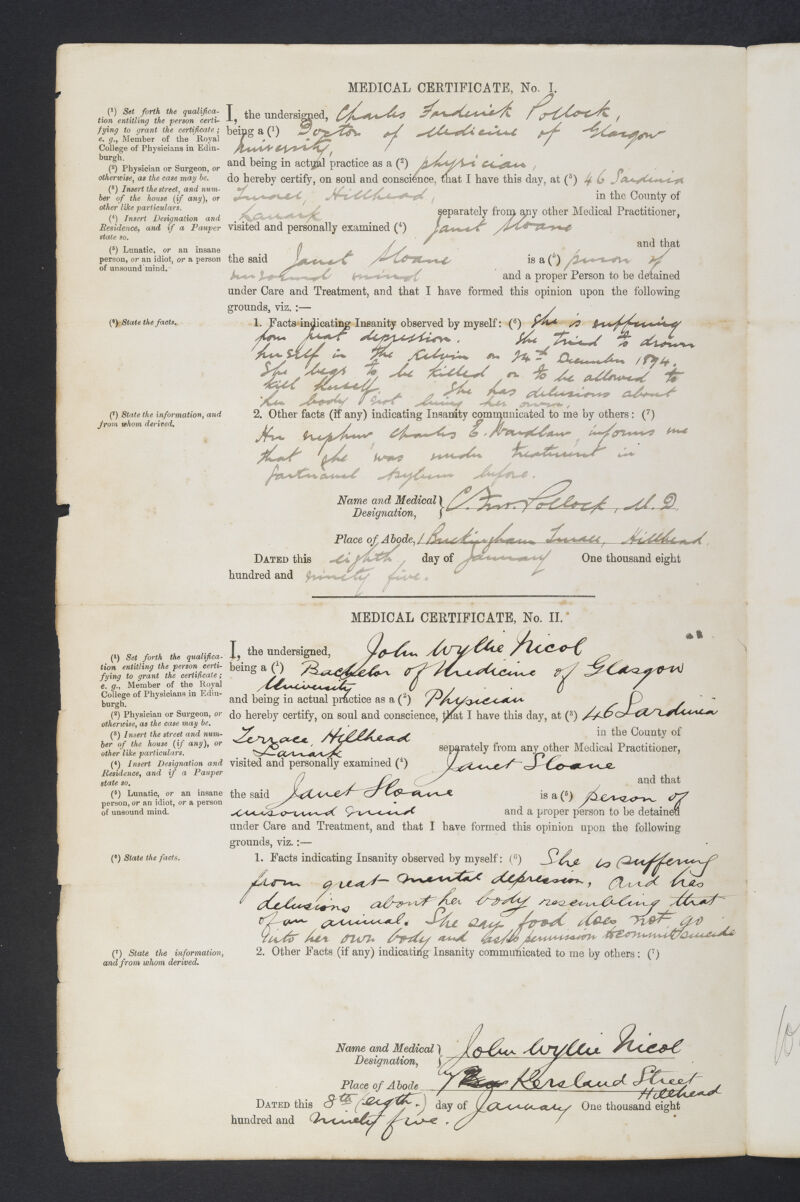 MEDICAL CERTIFICATE, No. I.
(¹) Set forth the qualifica-
tion entitling the person certi-
fying to grant the certificate;
e. g., Member of the Royal
College of Physicians in Edin-
burgh.
(²) Physician or Surgeon, or
otherwise, as the case may be.
(³) Insert the street, and num-
ber of the house (if any), or
other like particulars.
(⁴) Insert Designation and
Residence, and if a Pauper
state so.
(⁵) Lunatic, or an insane
person, or an idiot, or a person
of unsound mind.
I, the undersigned, Charles Frederick Pollock,
being a (¹) Doctor of Medicine of Glasgow
University,
and being in actual practice as a (²) physician,
do hereby certify, on soul and conscience, that I have this day, at (³) 46 Sardinia
Terrace, Hillhead, in the County of
Lanark separately from any other Medical Practitioner,
visited and personally examined (⁴) Janet Sloane
and that
the said Janet Sloane is a (⁵) person of
unsound mind and a proper Person to be detained
under Care and Treatment, and that I have formed this opinion upon the following
grounds, viz.:—
(⁶) State the facts.
1. Facts indicating Insanity observed by myself: (⁶) She is suffering
from great depression. She tried to drown
herself in the Kelvin on 14th December 1894.
She begs to be killed or to be allowed to
kill herself. She has delusions about
her body not being her own.
(⁷) State the information, and
from whom derived.
2. Other facts (if any) indicating Insanity communicated to me by others: (⁷)
Her nephew, Charles E. Wardlaw, informs me
that she was under treatment in
Gartnavel Asylum before.
Name and Medical Designation, C. Fred. Pollock, M.D.
Place of Abode, 1 Buckingham Terrace, Hillhead.
DATED this eighth day of January One thousand eight
hundred and ninety five.
MEDICAL CERTIFICATE, No. II.
(¹) Set forth the qualifica-
tion entitling the person certi-
fying to grant the certificate;
e. g., Member of the Royal
College of Physicians in Edin-
burgh.
(²) Physician or Surgeon, or
otherwise, as the case may be.
(³) Insert the street and num-
ber of the house (if any), or
other like particulars.
(⁴) Insert Designation and
Residence, and if a Pauper
state so.
(⁵) Lunatic, or an insane
person, or an idiot, or a person
of unsound mind.
I, the undersigned, John Wyllie Nicol
being a (¹) Bachelor of Medicine of Glasgow
University
and being in actual practice as a (²) Physician
do hereby certify, on soul and conscience, that I have this day, at (³) 46 Sardinia
Terrace, Hillhead in the County of
Lanark separately from any other Medical Practitioner,
visited and personally examined (⁴) Janet Sloane
and that
the said Janet Sloane is a (⁵) person of
unsound mind and a proper person to be detained
under Care and Treatment, and that I have formed this opinion upon the following
grounds, viz.:—
(⁶) State the facts.
1. Facts indicating Insanity observed by myself: (⁶) She is suffering
from great mental depression, and has
delusions about her body resembling that
of an animal. She says food does not go
into her own body and asks permission to commit suicide
(⁷) State the information,
and from whom derived.
2. Other Facts (if any) indicating Insanity communicated to me by others: (⁷)
Name and Medical Designation, John Wyllie Nicol
Place of Abode 7 Kersland Street
Hillhead
DATED this 8th (eigth.) day of January One thousand eight
hundred and Ninety five.